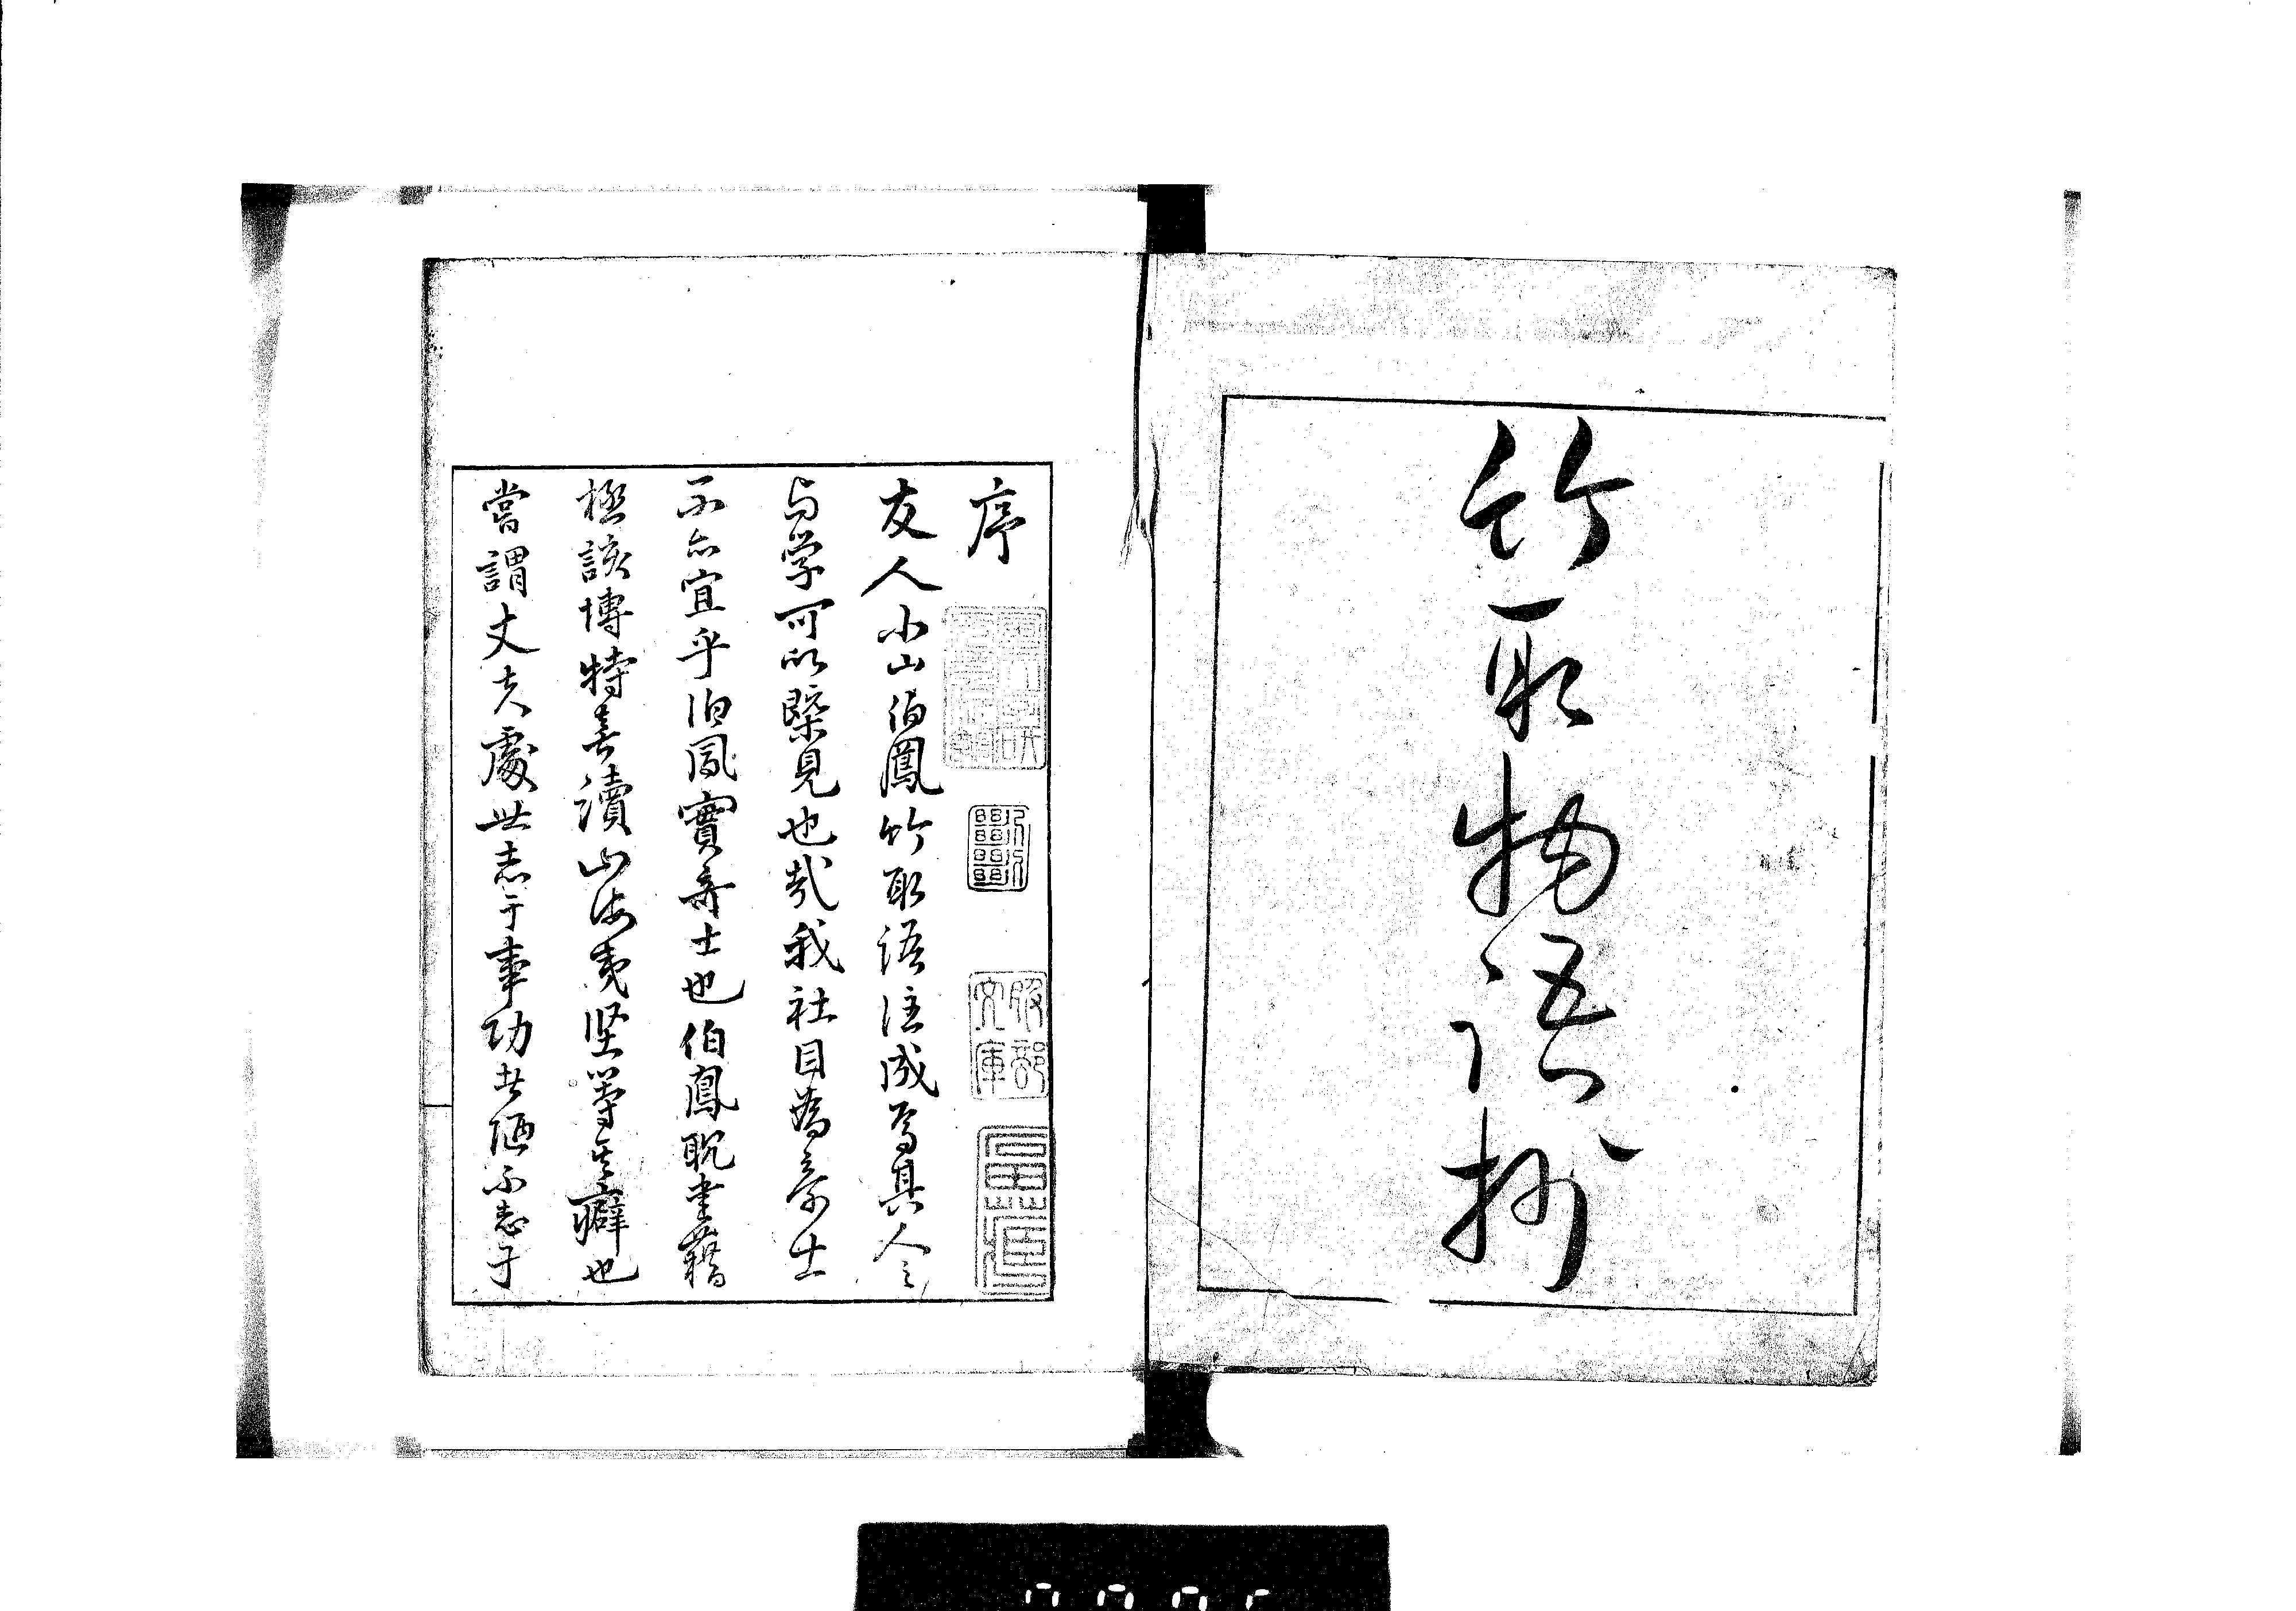 竹取物語抄
序
友人小山伯鳳竹取語注成為其人
与学可以槩見也哉我社目為奇士
不亦宜乎伯鳳實奇士也伯鳳耽書籍
極該博特喜讀山海夷堅等其癖也
嘗謂丈夫處世志于事功者陋不志于
服部
文庫